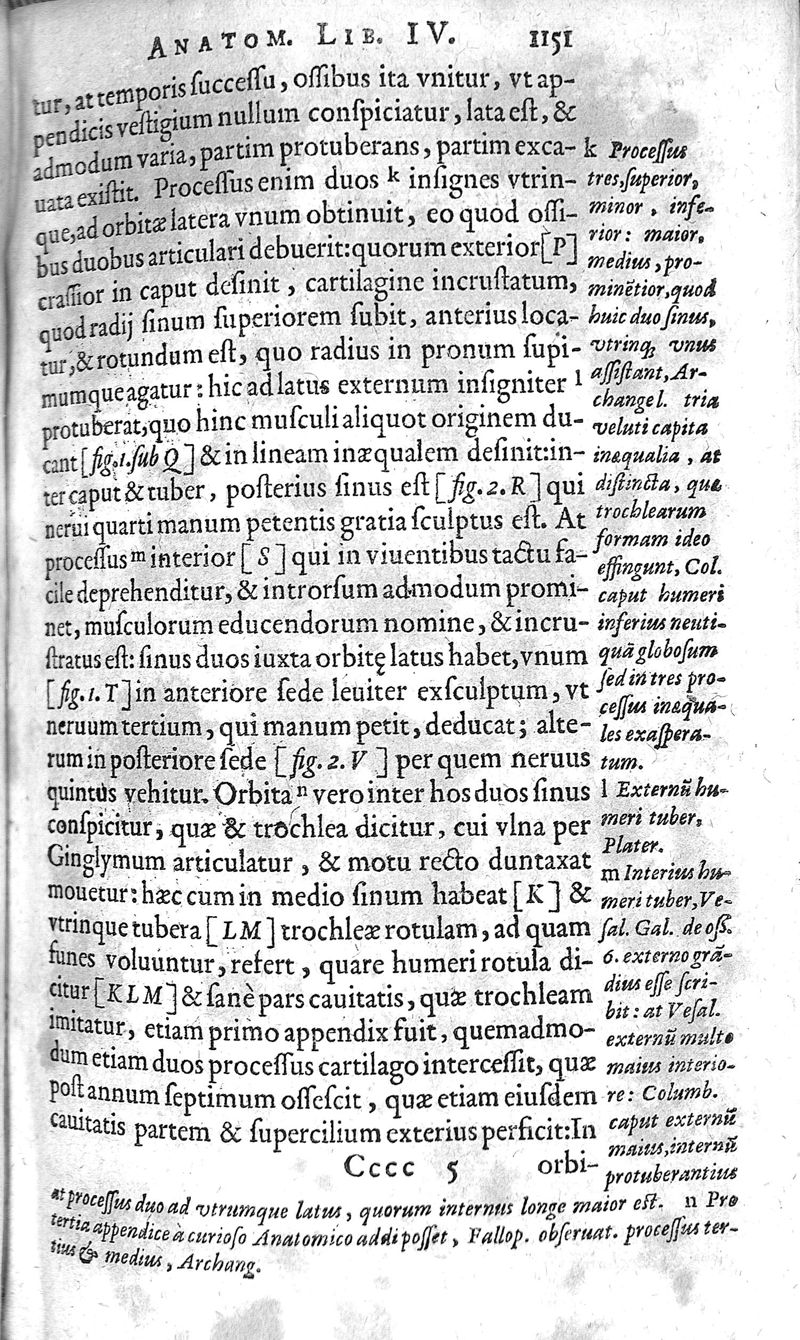 ANATOM. LIB. IV. 1151
tur, at temporis ſucceſſu, oſſibus ita vnitur, vt ap-
pendicis veſtigium nullum conſpiciatur, lata eſt, &
admodum varia, partim protuberans, partim exca-
uata exiſtit. Proceſſus enim duos k inſignes vtrin-
que, ad orbitæ latera vnum obtinuit, eo quod oſſi-
bus duobus articulari debuerit: quorum exterior [P]
craſſior in caput deſinit, cartilagine incruſtatum,
quod radij ſinum ſuperiorem ſubit, anterius loca-
tur, & rotundum eſt, quo radius in pronum ſupi-
mumque agatur: hic ad latus externum inſigniter l
protuberat, quo hinc muſculi aliquot originem du-
cant [fig. 1. ſub Q] & in lineam inæqualem deſinit: in-
ter caput & tuber, poſterius ſinus eſt [fig. 2. R] qui
nerui quarti manum petentis gratia ſculptus eſt. At
proceſſus m interior [S] qui in viuentibus tactu fa-
cile deprehenditur, & introrſum admodum promi-
net, muſculorum educendorum nomine, & incru-
ſtratus eſt: ſinus duos iuxta orbitę latus habet, vnum
[fig. 1. T] in anteriore ſede leuiter exſculptum, vt
neruum tertium, qui manum petit, deducat; alte-
rum in poſteriore ſede [fig. 2. V] per quem neruus
quintus vehitur. Orbita n vero inter hos duos ſinus
conſpicitur, quæ & trochlea dicitur, cui vlna per
Ginglymum articulatur, & motu recto duntaxat
mouetur: hæc cum in medio ſinum habeat [K] &
vtrinque tubera [LM] trochleæ rotulam, ad quam
funes voluuntur, refert, quare humeri rotula di-
citur [KLM] & ſanè pars cauitatis, quæ trochleam
imitatur, etiam primo appendix fuit, quemadmo-
dum etiam duos proceſſus cartilago interceſſit, quæ
poſt annum ſeptimum oſſeſcit, quæ etiam eiuſdem
cauitatis partem & ſupercilium exterius perficit: In
Cccc 5 orbi-
k Proceſſus
tres, ſuperior,
minor, infe-
rior: maior,
medius, pro-
minẽtior, quod
huic duo ſinus,
vtrinq; vnus
aſſiſtant, Ar-
changel. tria
veluti capita
inæqualia, at
diſtincta, quæ
trochlearum
formam ideo
effingunt, Col.
caput humeri
inferius neuti-
quã globoſum
ſed in tres pro-
ceſſus inæqua-
les exaſpera-
tum.
l Externũ hu-
meri tuber,
Plater.
m Interius hu-
meri tuber, Ve-
ſal. Gal. de oſſ.
6. externo grã-
dius eſſe ſcri-
bit: at Veſal.
externũ multo
maius interio-
re: Columb.
caput externũ
maius, internũ
protuberantius
at proceſſus duo ad vtrumque latus, quorum internus longe maior eſt. n Pro
tertia appendice à curioſo Anatomico addi poſſet, Fallop. obſeruat. proceſſus ter-
tius & medius, Archang.